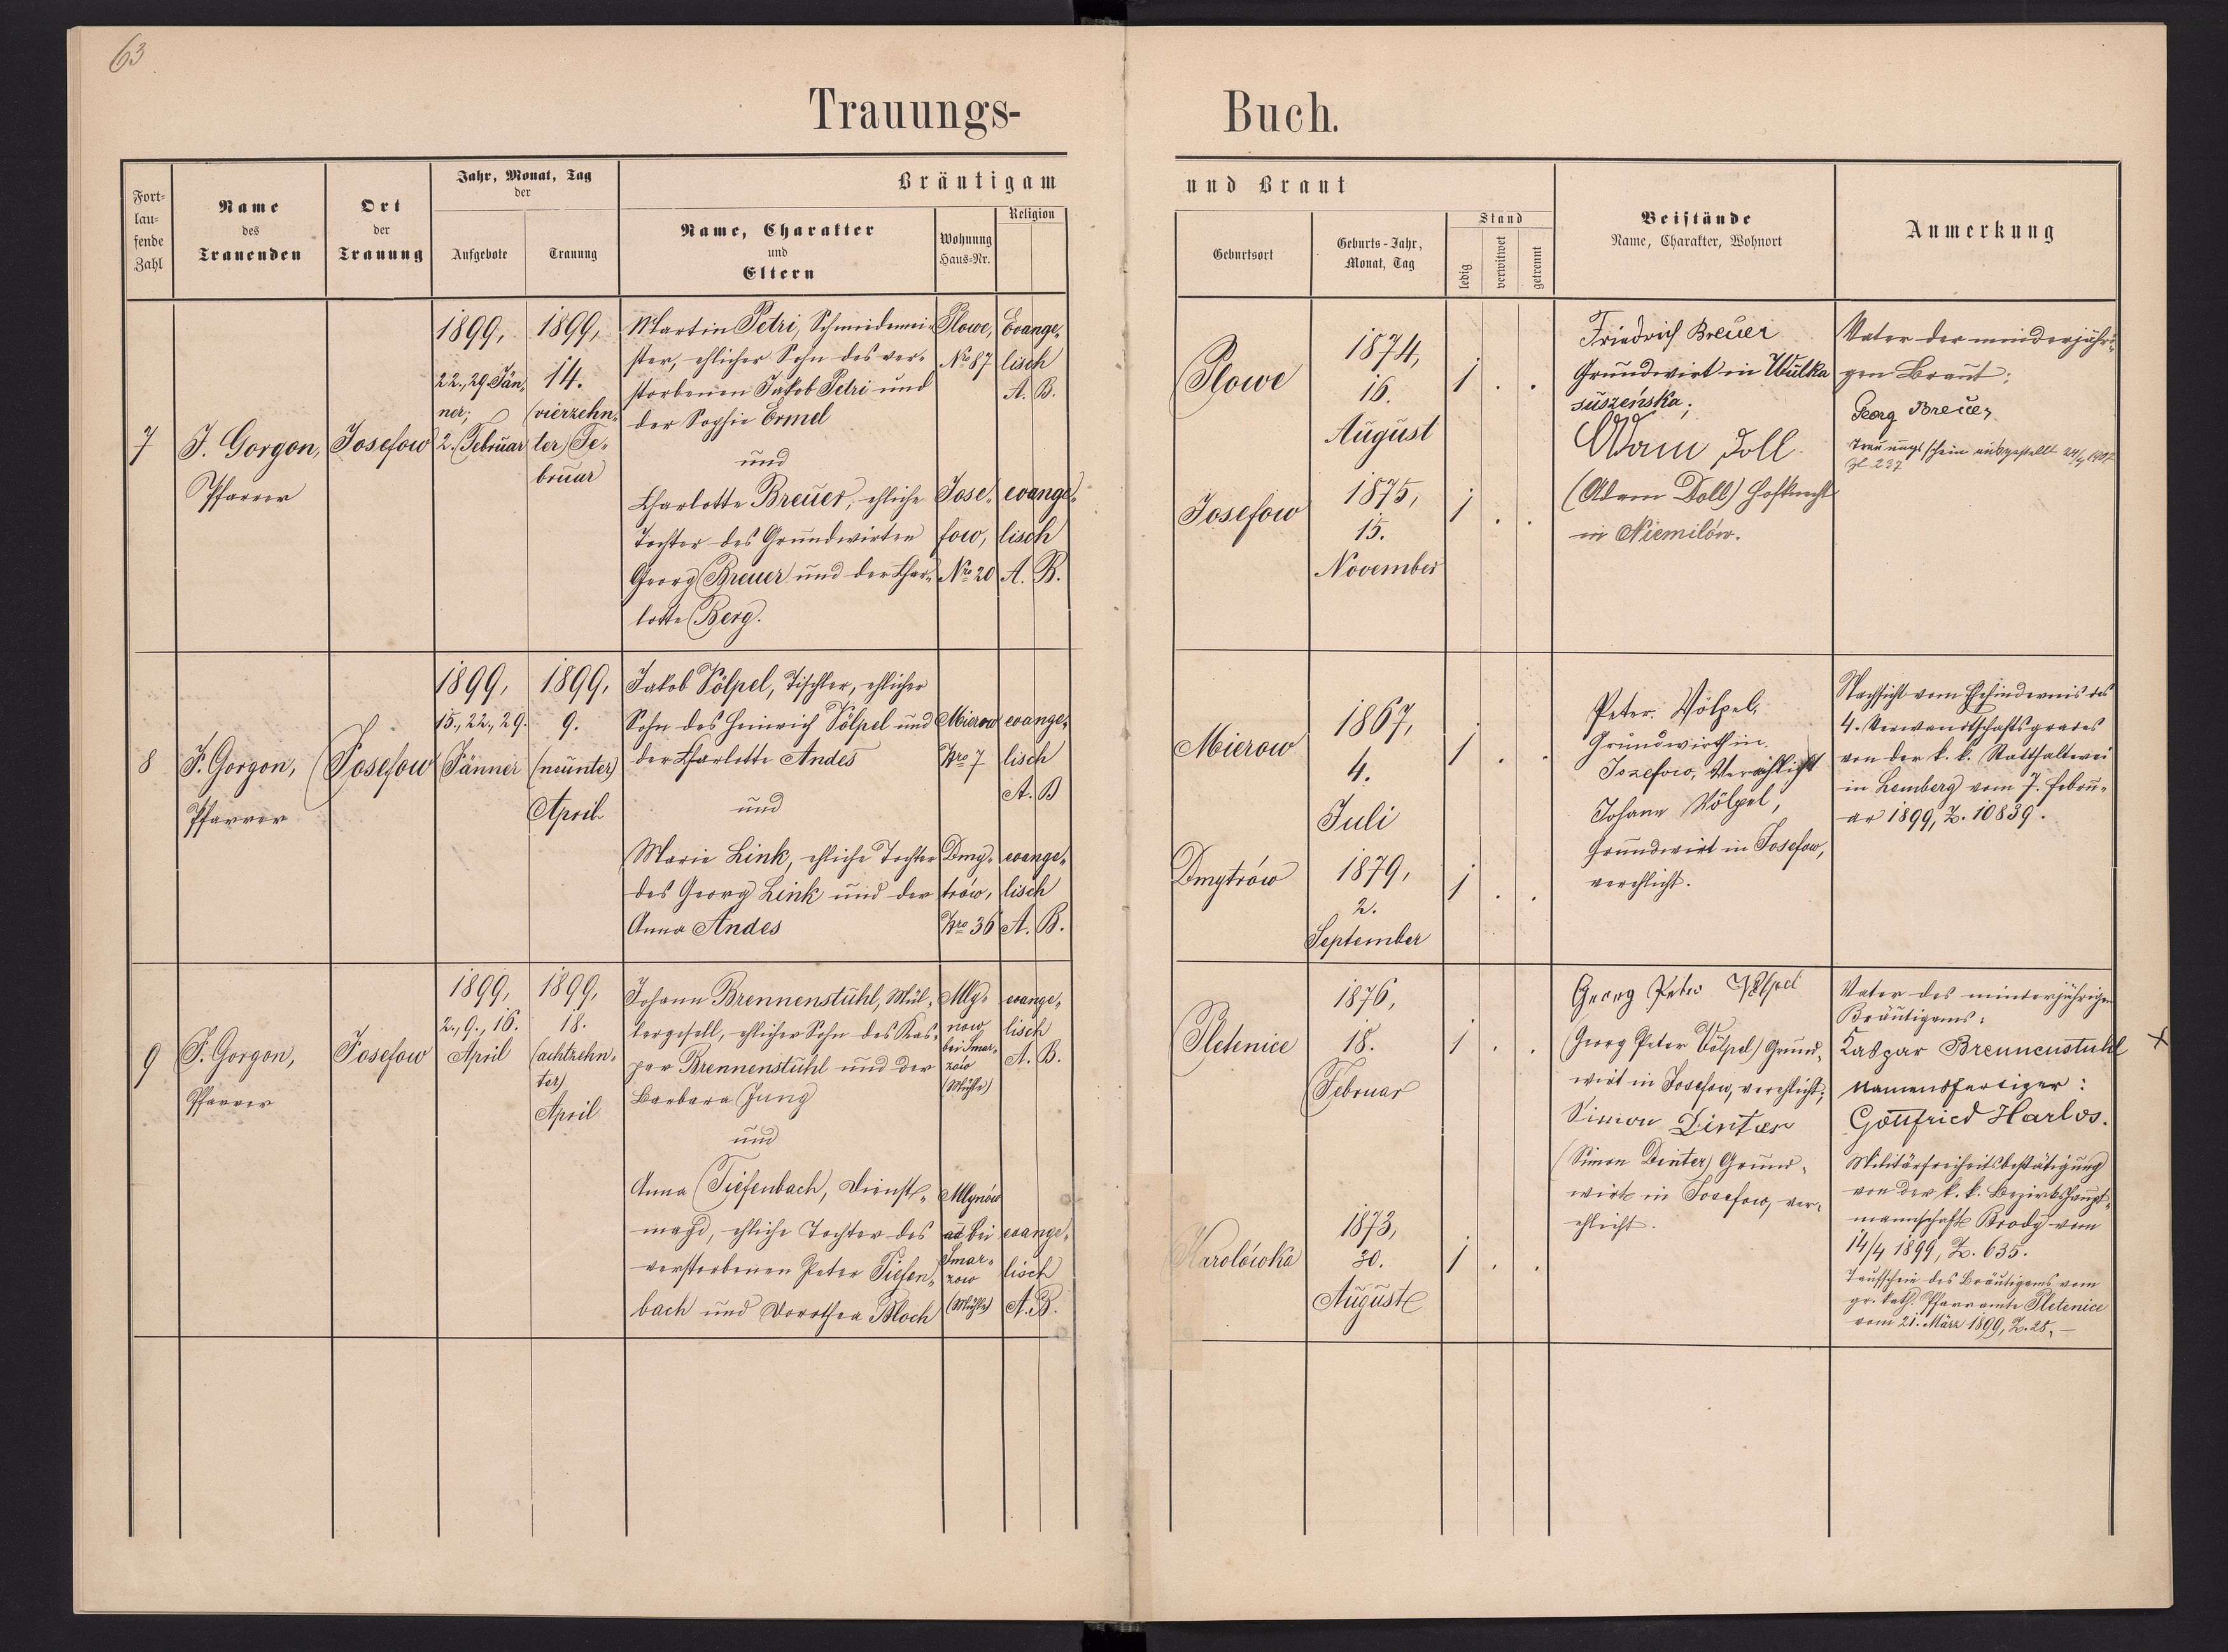 63
Trauungs-
Buch.
Fort-
lau-
fende
Zahl
Name
des
Trauenden
Ort
der
Trauung
Jahr, Monat, Tag
der
Aufgebote
Trauung
Bräutigam
Name, Charakter
und
Eltern
Wohnung
Haus-Nr.
Religion
und Braut
Geburtsort
Geburts-Jahr,
Monat, Tag
Stand
ledig
verwitwet
getrennt
Beistände
Name, Charakter, Wohnort
Anmerkung
7
J. Gorgon,
Pfarrer
Josefow
1899,
22., 29. Jän-
ner;
2. Februar
1899,
14.
(vierzehn-
ter) Fe-
bruar
Martin Petri, Schmiedemei-
ster, ehlicher Sohn des ver-
storbenen Jakob Petri und
der Sophie Ermel
und
Charlotte Breuer, ehliche
Tochter des Grundwirten
Georg Breuer und der Char-
lotte Berg.
Płowe,
Nro 87
Jose-
fow,
Nro 20
Evange-
lisch
A. B.
evange-
lisch
A. B.
Płowe
Josefow
1874,
16.
August
1875,
15.
November
1 . .
1 . .
Friedrich Breuer
Grundwirt in Wulka
suszeńska;
Adam Doll
(Adam Doll) Hofknecht
in Niemiłów.
Vater der minderjähri-
gen Braut:
Georg Breuer
Trauungsschein ausgestellt
Zl. 237
8
J. Gorgon,
Pfarrer
Josefow
1899,
15., 22., 29.
Jänner
1899,
9.
(neunter)
April
Jakob Völpel, Tischler, ehlicher
Sohn des Heinrich Völpel und
der Charlotte Andes
und
Marie Link, ehliche Tochter
des Georg Link und der
Anna Andes
Mierow
Nro 7
Dmy-
trów,
Nro 36
evange-
lisch
A. B
evange-
lisch
A. B.
Mierow
Dmytrów
1867,
4.
Juli
1879,
2.
September
1 . .
1 . .
Peter Völpel,
Grundwirth in
Jozefow, Verehlicht
Johann Völpel,
Grundwirt in Josefow,
verehlicht.
Nachsicht vom Ehehindernis des
4. Verwandtschaftsgrades
von der k. k. Statthalterei
in Lemberg vom 7. Febru-
ar 1899, Z. 10839.
9
J. Gorgon,
Pfarrer
Josefow
1899,
2., 9., 16.
April
1899,
18.
(achtzehn-
ter)
April
Johann Brennenstuhl, Mül-
lergesell, ehlicher Sohn des Kas-
par Brennenstuhl und der
Barbara Jung
und
Anna Tiefenbach, Dienst-
magd, ehliche Tochter des
verstorbenen Peter Tiefen-
bach und Dorothea Bloch
Mły-
now
bei Smar-
zów
(Mühle)
Młynów
bei
Smar-
zow
(Mühle)
evange-
lisch
A. B.
evange-
lisch
A. B.
Pletenice
Karolówka
1876,
18.
Februar
1873,
30.
August
1 . .
1 . .
Georg Peter Völpel
(Georg Peter Völpel) Grund-
wirt in Josefow, verehlicht;
Simon Dinter
(Simon Dinter) Grund-
wirt in Josefow, ver-
ehlicht.
Vater des minderjährigen
Bräutigams:
Kaspar Brennenstuhl X
Namensfertiger:
Gottfried Harlos.
Militärfreiheitsbestätigung
von der k. k. Bezirkshaupt-
mannschaft Brody vom
14/4 1899, Z. 635.
Taufschein des Bräutigams vom
gr. kath. Pfarramte Pletenice
vom 21. März 1899, Z. 25.—